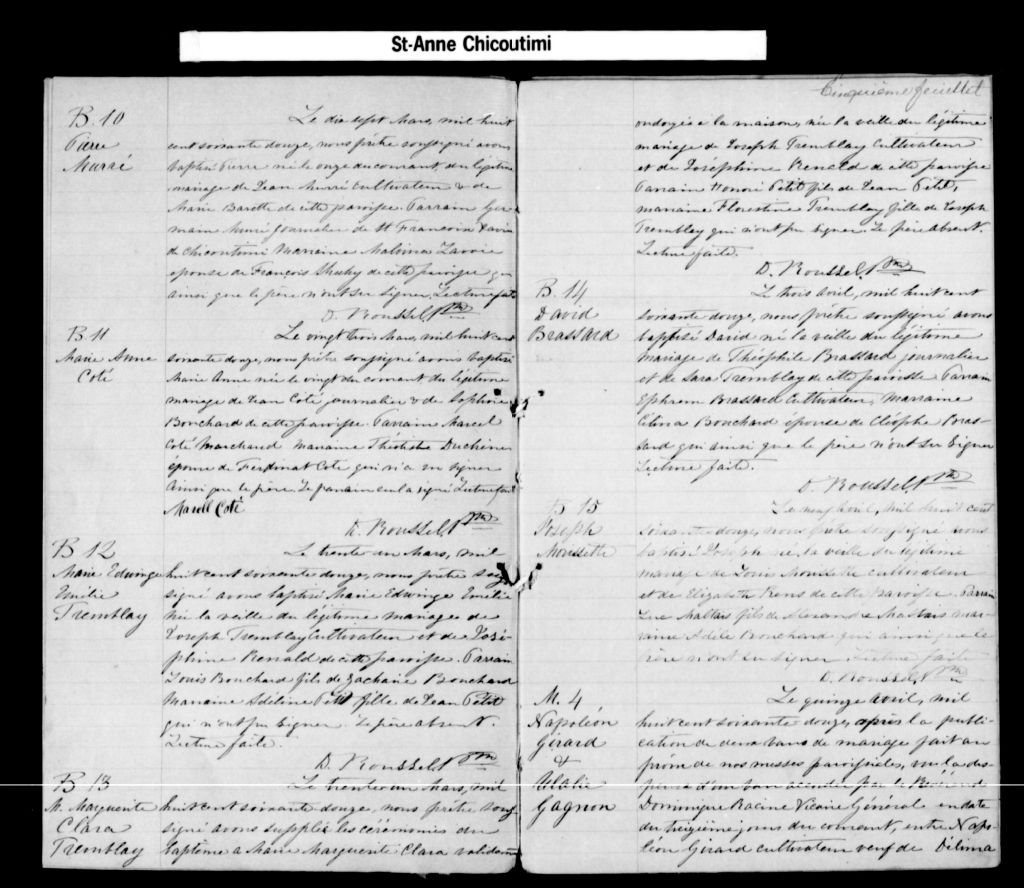 St-Anne Chicoutimi
B. 10
Pierre
Murré
Le dix sept Mars, mil huit
cent soixante douze, nous prêtre soussigné avons
baptisé Pierre né le onze du courant du légitime
mariage de Jean Murré Cultivateur & de
Marie Barette de cette paroisse. Parrain Ger
main Murré journalier de St François Xavier
de Chicoutimi Marraine Malvina Lavoie
epouse de François Sheehy de cette paroisse qui
ainsi que le père n'ont su signer. Lecture faite
D. Roussel Ptre
B. 11
Marie Anne
Coté
Le vingt trois Mars, mil huit cent
soixante douze, nous prêtre soussigné avons baptisé
Marie Anne née le vingt du courant du légitime
mariage de Jean Coté journalier & de Sophronie
Bouchard de cette paroisse. Parrain Marcel
Coté Marchand marraine Théotiste Duchêne
épouse de Ferdinat Coté qui n'a su signer
ainsi que le père. Le parrain seul a signé Lecture faite
Marcell Coté
D. Roussel Ptre
B 12
Marie Edwinge
Emélie
Tremblay
Le trente un Mars, mil
huit cent soixante douze, nous prêtre sous
signé avons baptisé Marie Edwinge Emélie
née la veille du légitime mariages de
Joseph Tremblay Cultivateur et de José-
phine Renald de cette paroisse. Parrain
Louis Bouchard fils de Zacharie Bouchard
Marraine Adéline Petit fille de Jean Petit
qui n'ont pu signer. Le père absent.
Lecture faite.
D. Roussel Ptre
B 13
M. Marguerite
Clara
Tremblay
Le trente un Mars, mil
huit cent soixante douze, nous prêtre sous
signé avons supplée les cérémonies du
baptême a Marie Marguerite Clara validame
Cinquième feuillet
ondoyée a la maison, née la veille du légitime
mariage de Joseph Tremblay Cultivateur
et de Joséphine Renald de cette paroisse
Parrain Honoré Petit fils de Jean Petit,
marraine Florestine Tremblay fille de Joseph
Tremblay qui n'ont pu signer. Le père absent.
Lecture faite.
D. Roussel Ptre
B. 14
David
Brassard
Le trois Avril, mil huit cent
soixante douze, nous prêtre soussigné avons
baptisé David né la veille du légitime
mariage de Théophile Brassard journalier
et de Sara Tremblay de cette paroisse Parrain
Ephrem Brassard Cultivateur, Marraine
Célina Bouchard épouse de Cléophe Bras-
sard qui ainsi que le père n'ont su signer
Lecture faite.
D. Roussel Ptre
B 15
Joseph
Morissette
Le neuf Avril, mil huit cent
soixante douze, nous prêtre soussigné avons
baptisé Joseph né, la veille du légitime
mariage de Louis Morissette cultivateur
et de Elizabeth de cette Paroisse. Parrain
Luc Maltais fils de Alexandre Maltais mar-
raine Adèle Bouchard qui ainsi que le
père n'ont su signer Lecture faite
D. Roussel Ptre
M. 4
Napoléon
Girard
&
Ulalie
Gagnon
Le quinze Avril, mil
huit cent soixante douze, après la publi-
cation de deux bans de mariage fait au
prône de nos messes paroissiales, vu la dis-
pense d'un ban accordée par le Révérend
Dominique Racine Vicaire Général en date
du treizième jours du courant, entre Napo-
léon Girard cultivateur veuf de Délima